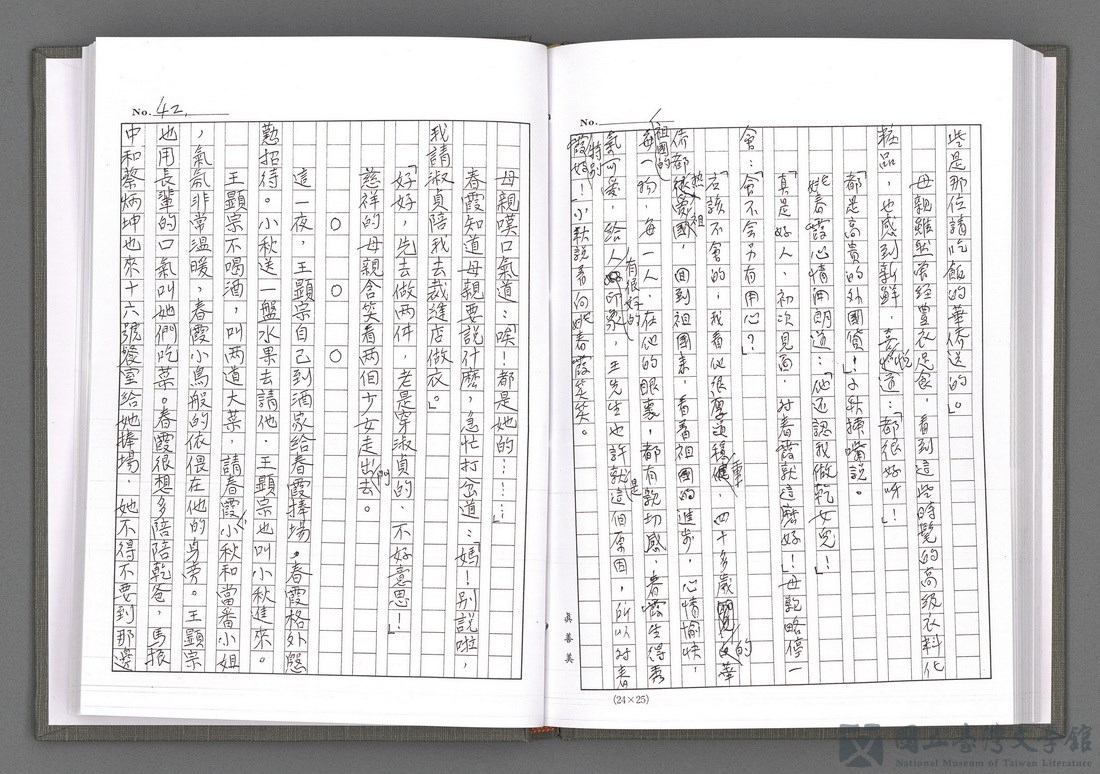 No.
些是那位請吃飯的華僑送的。」
母親雖然曾經豐衣足食，看到這些時髦的高級衣料化
粧品，也感到新鮮，喜悅道：「都很好呀！」
「都是高貴的外國貨！」小秋揷嘴說。
春霞心情開朗道：「他还認我做乾女兒！」
「真是好人，初次見面，对春霞就這麼好！」母親略停一
會：「會不会另有用心？」
「应該不會的，我看他很厚道穩重，四十多歲的華
僑都熱愛祖國，回到祖國來，看看祖國的進步，心情愉快，
祖國的每一物，每一人，在他的眼裏，都有親切感，春霞生得秀
氣可愛，給人有很好的印象，王先生也許就是這個原因，所以对春
霞特別好！」小秋說着向春霞笑笑。
眞善美
(24×25)
No. 42.
母親嘆口氣道：「唉！都是她的⋯⋯⋯」
春霞知道母親要說什麼，急忙打岔道：「媽！別說啦，
我請淑貞陪我去裁縫店做衣。」
「好好，先去做两件，老是穿淑貞的，不好意思！」
慈祥的母親含笑看两個少女走出門去。
○ ○ ○
這一夜，王顯宗自己到酒家給春霞捧場，春霞格外慇
懃招待。小秋送一盤水果去請他，王顯宗也叫小秋進來。
王顯宗不喝酒，叫两道大菜，請春霞、小秋和當番小姐
，氣氛非常温暖，春霞小鳥般的依偎在他的身旁。王顯宗
也用長輩的口氣叫她們吃菜。春霞很想多陪陪乾爸，馬振
中和蔡炳坤也來十六號餐室給她捧場，她不得不要到那邊
國立臺灣文學館
National Museum of Taiwan Literature